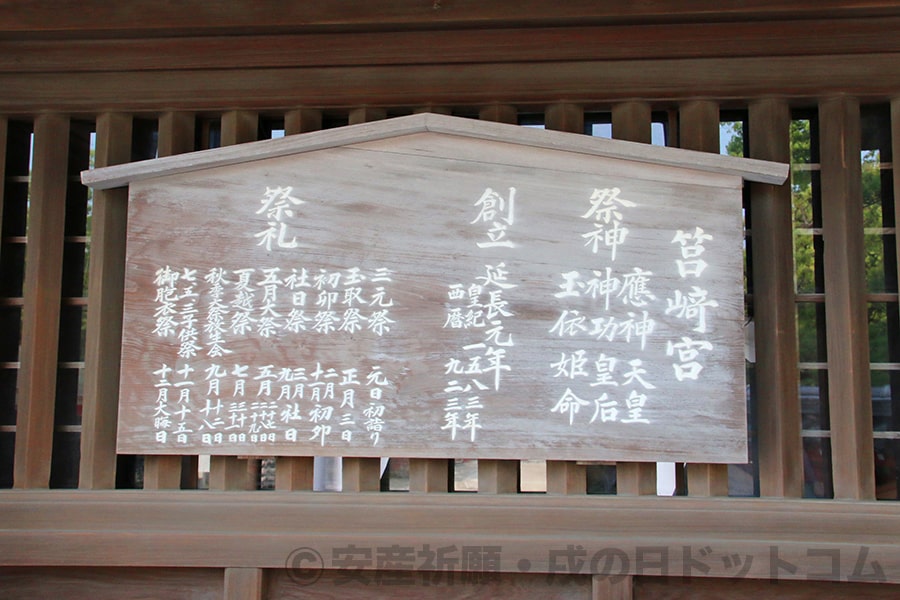 筥崎宮
祭神
應神天皇
神功皇后
玉依姫命
創立
延長元年
皇紀 一五八三年
西暦 九二三年
祭礼
三元祭 元日初詣り
玉取祭 正月三日
初卯祭 二月 十一月 初卯
社日祭 三月 九月 社日
五月大祭 五月
夏越祭 七月
秋季大祭放生会 九月 十二日 十八日
七五三子供祭 十一月十五日
御胞衣祭 十二月大晦日
©安産祈願・戌の日ドットコム